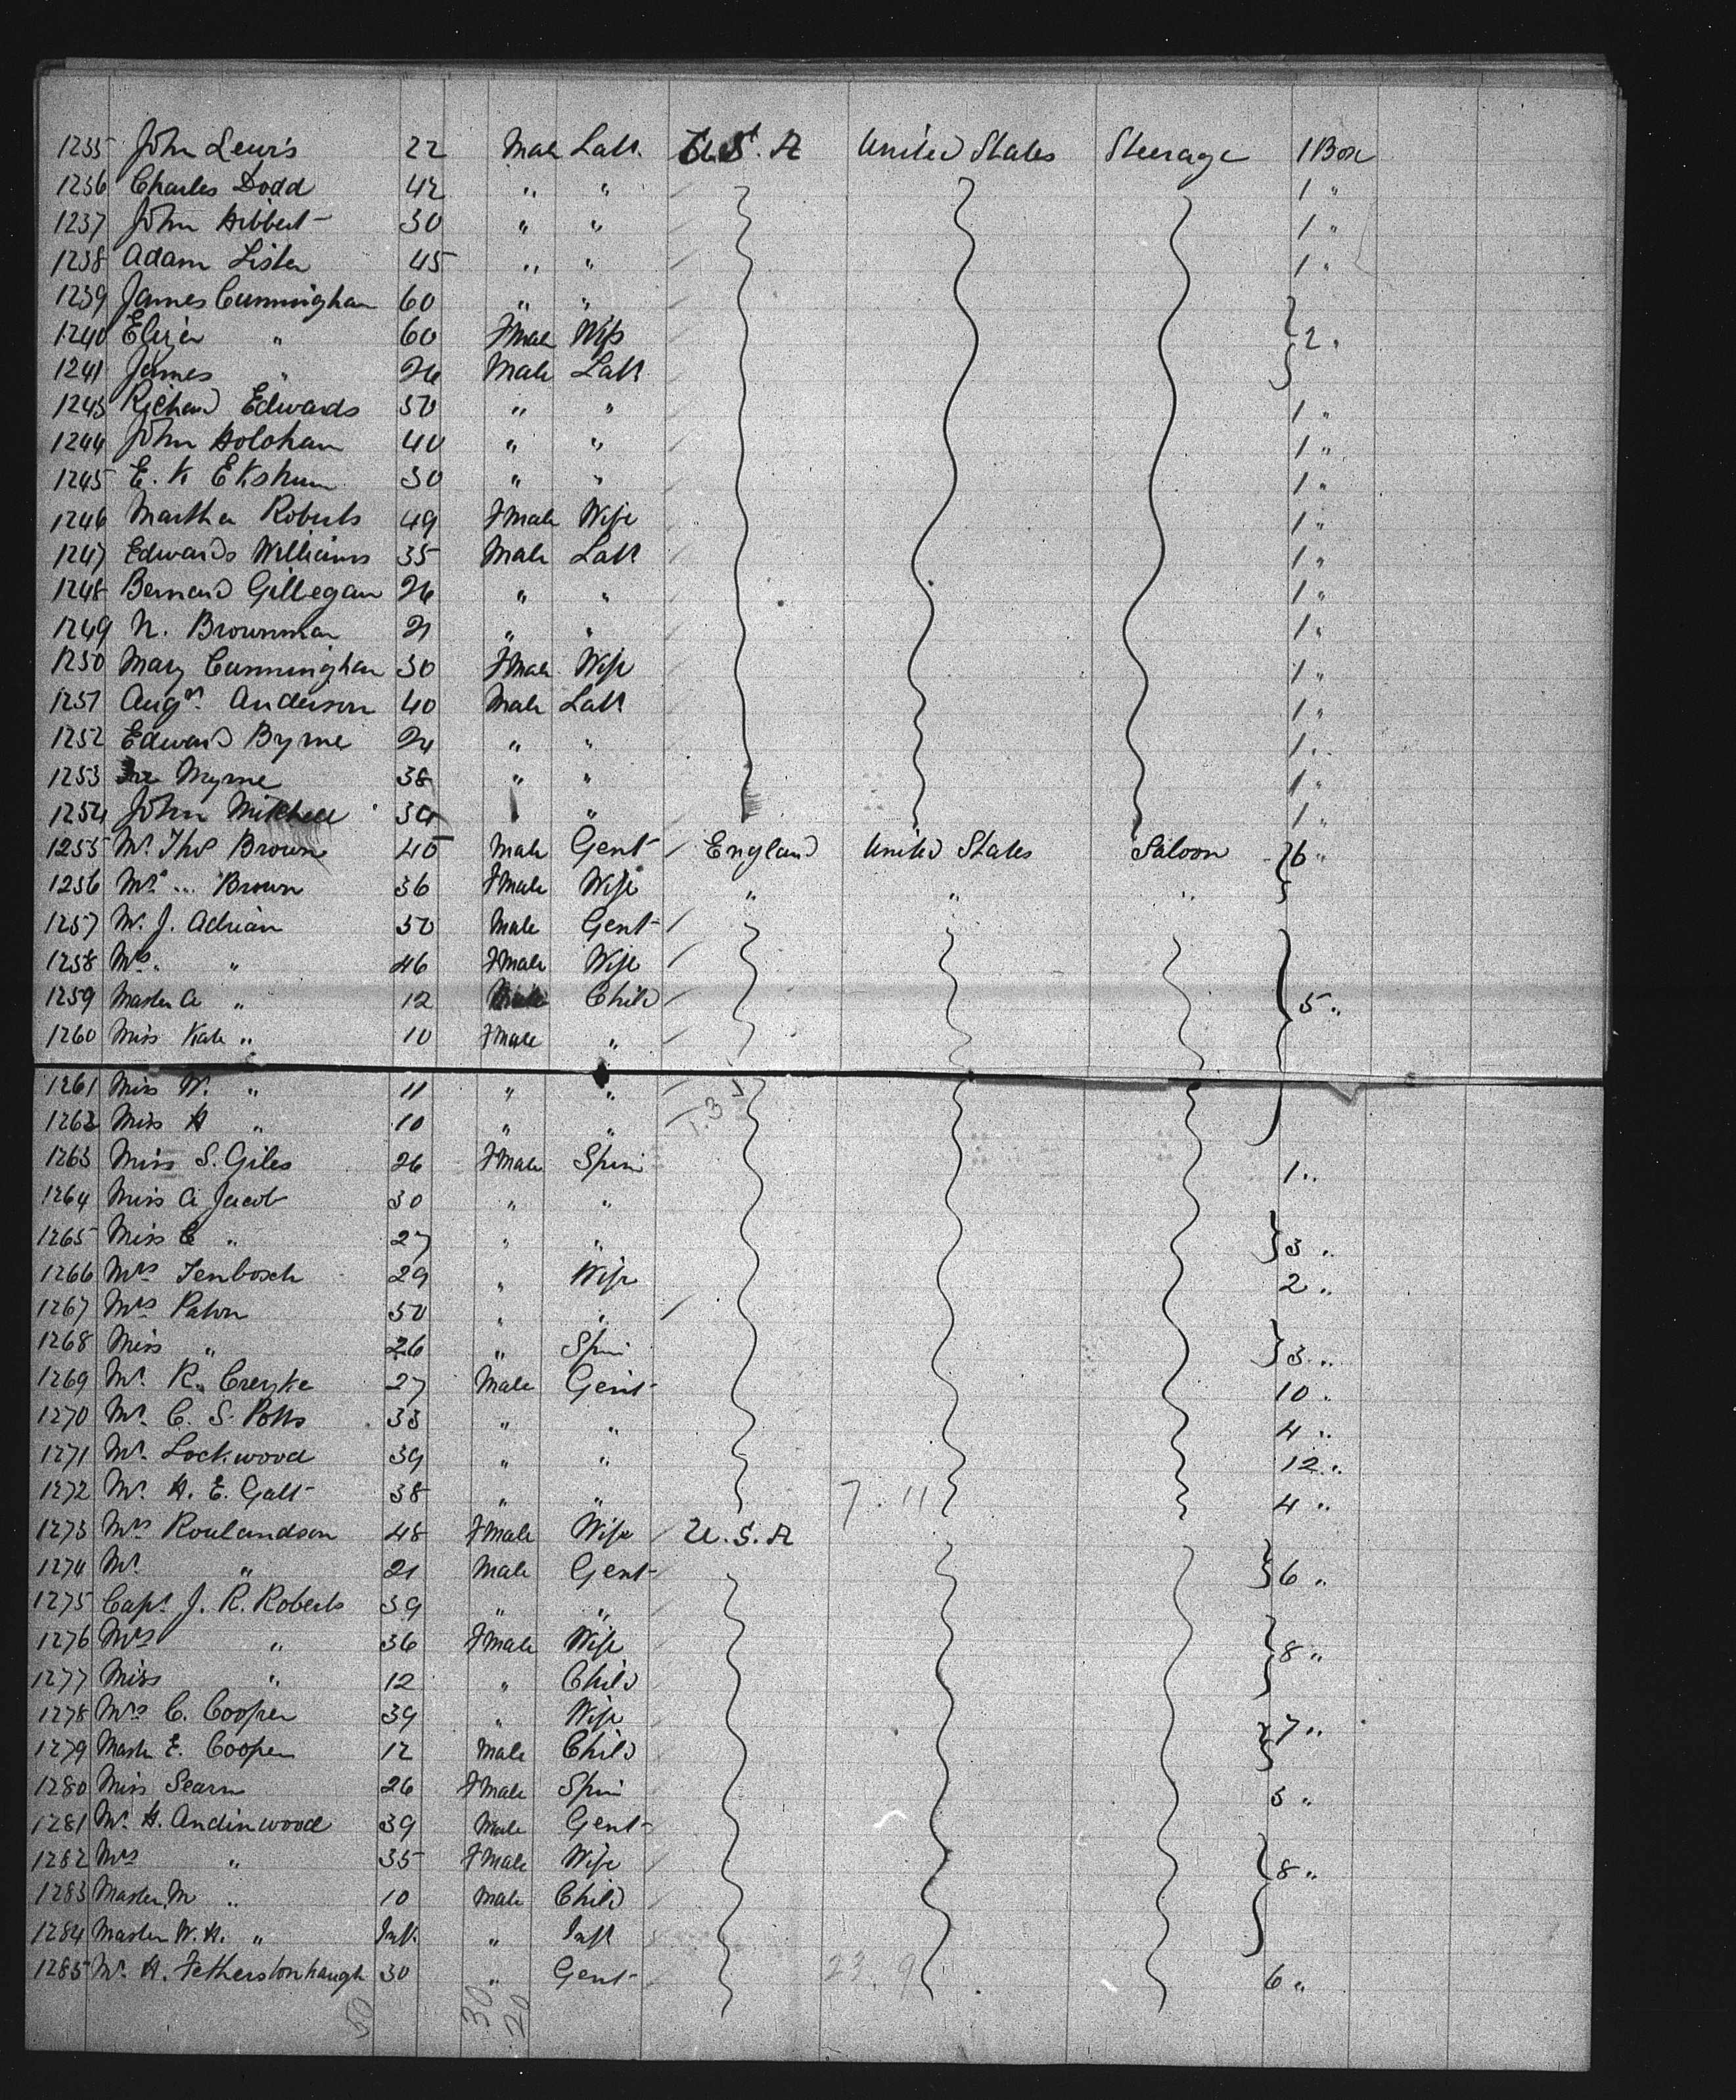 1235 John Lewis 22 Male Labr. U.S.A United States Steerage 1 Box
1236 Charles Dodd 42 " " 1 "
1237 John Hibbert 30 " " 1 "
1238 Adam Lister 45 " " 1 "
1239 James Cunningham 60 " "
1240 Eliza " 60 Fmale Wife 2 "
1241 James " 26 Male Labr
1243 Richard Edwards 50 " " 1 "
1244 John Holohan 40 " " 1 "
1245 E. K 30 " " 1 "
1246 Martha Roberts 49 Fmale Wife 1 "
1247 Edwards Williams 35 Male Labr 1 "
1248 Bernard Gillegan 26 " " 1 "
1249 N. Brownman 21 " " 1 "
1250 Mary Cunningham 30 Fmale Wife 1 "
1251 Augst. Anderson 40 Male Labr 1 "
1252 Edward Byrne 24 " " 1 "
1253 Myrne 38 " " 1 "
1254 John Mitchell 34 " 1 "
1255 Mr. Thos Brown 45 Male Gent England United States Saloon 6 "
1256 Mrs " Brown 36 Fmale Wife " " "
1257 W. J. Adrian 50 Male Gent
1258 Mrs. " 46 Fmale Wife
1259 Master A " 12 Male Child 5 "
1260 Miss Kate " 10 Fmale "
1261 Miss W. " 11 " "
1262 Miss H " 10 " "
1263 Miss S. Giles 26 Fmale Spin 1 "
1264 Miss A Jacob 30 " "
1265 Miss C " 27 " " 3 "
1266 Mrs Tenbosch 29 " Wife 2 "
1267 Mrs Paton 50 " "
1268 Miss " 26 " Spin 3 "
1269 Mr. R. Creyke 27 Male Gent 10 "
1270 Mr. C. S. Potts 33 " " 4 "
1271 Mr. Lockwood 39 " " 12 "
1272 Mr. H. E. Galt 38 " " 7.11 4 "
1273 Mrs Roulandson 48 Fmale Wife U.S.A
1274 Mr. " 21 Male Gent 6 "
1275 Capt J. R. Roberts 39 " "
1276 Mrs " 36 Fmale Wife 8 "
1277 Miss " 12 " Child
1278 Mrs C. Cooper 39 " Wife 7 "
1279 Mastr E. Cooper 12 Male Child
1280 Miss Searn 26 Fmale Spin 3 "
1281 Mr. H. Andinwood 39 Male Gent
1282 Mrs " 35 Fmale Wife 8 "
1283 Master M " 10 Male Child
1284 Master W. H. " Inft. " Inft
1285 Mr. H. Fetherstonhaugh 30 " Gent 23.9 6 "
50 30 20